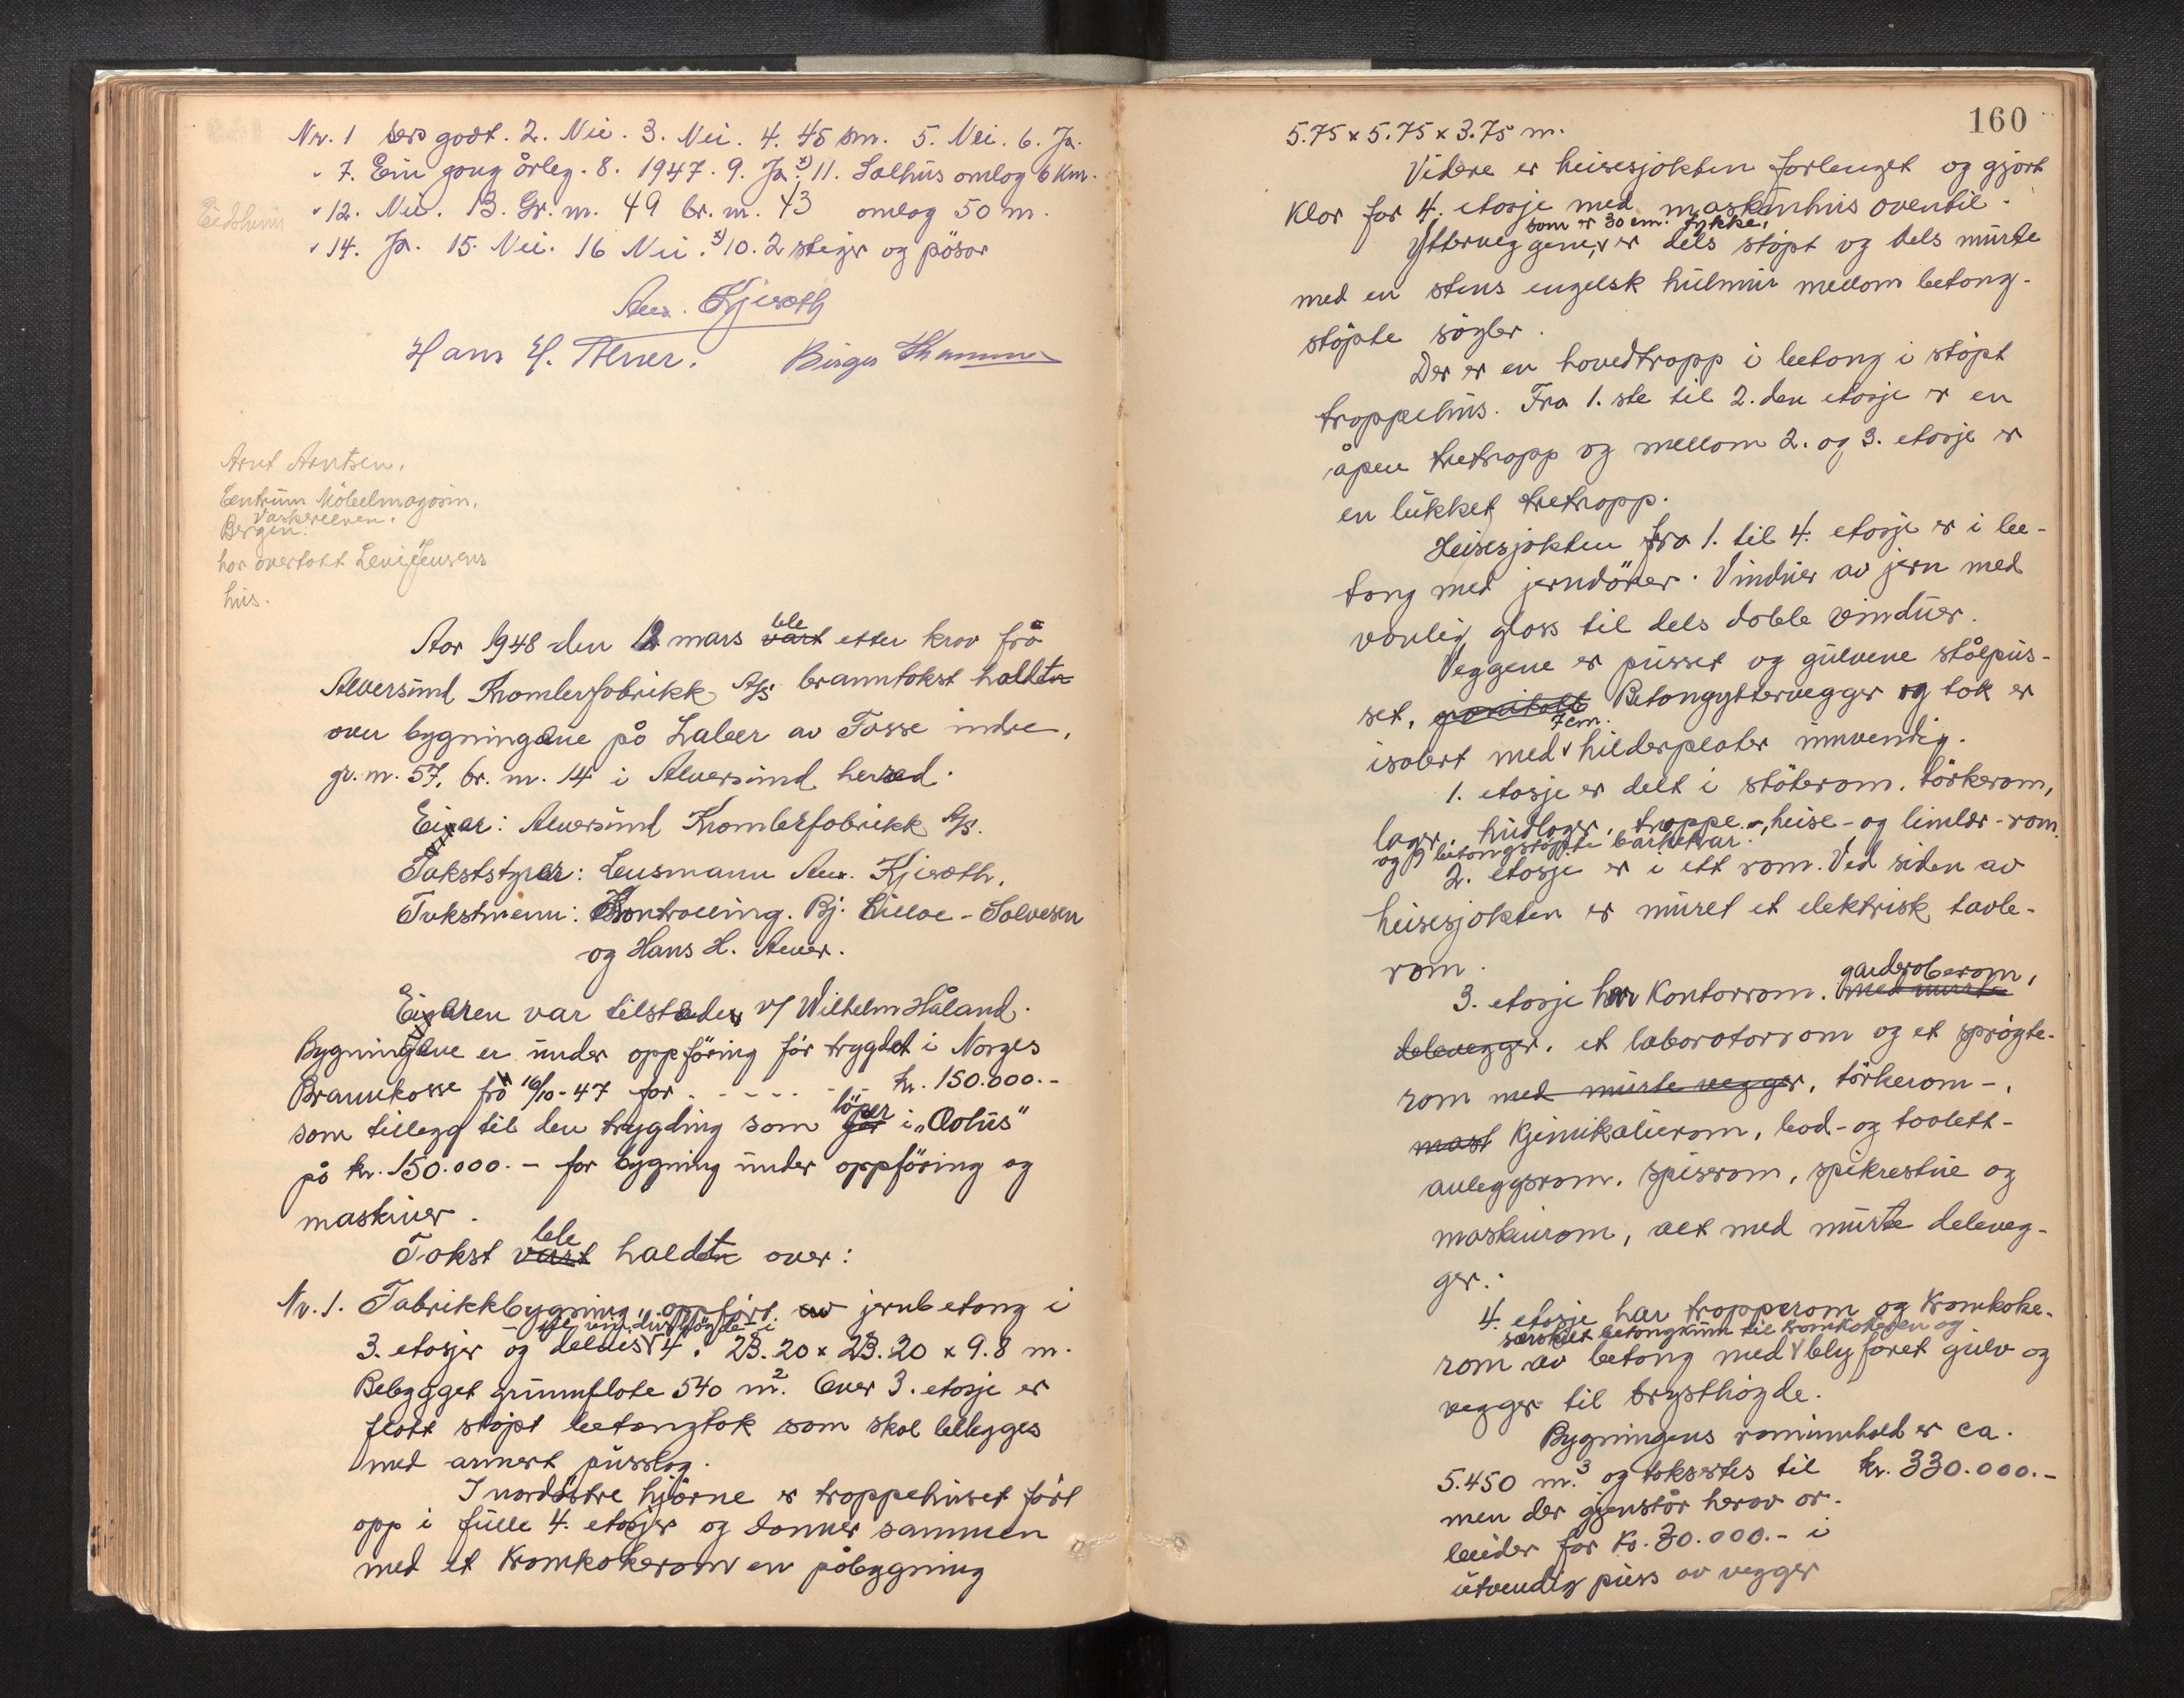 Nr. 1 Bers godt. 2. Nei. 3. Nei. 4. 45 sm. 5. Nei. 6. Ja.
" 7. Ein gong årleg. 8. 1947. 9. Ja. x) 11. Salhus omlag 6 km.
" 12. Nei. 13. Gr. nr. 49 br. nr. 43 omlag 50 m.
" 14. Ja. 15. Nei. 16 Nei. x) 10. 2 stiger og pösar
Eidsheim
Alex. Kjeræth
Hans H. Alver. Birger
Arnt Arntsen.
Centrum Möbelmagasin.
Vaskerelven.
Bergen.
har overtatt Levi Jensens
hus.
Aar 1948 den 12 mars vart ble etter krav frå
Alversund Kromlerfabrikk A/S branntakst haldt
over bygningene på Labeer av Fosse indre,
gr. nr. 57, br. nr. 14 i Alversund herad.
Eier: Alversund Kromlerfabrikk A/S.
Takststyrer: Lensmann Alex. Kjeræth.
Takstmenn: Kontrolling. Bj. Lilloe-Solvesen
og Hans H. Alver.
Eieren var tilstede v/ Wilhelm Håland.
Bygningene er under oppföring för trygdet i Norges
Brannkasse frå 16/10-47 for . - - - - - kr. 150.000.-
som tillegg til den trygding som går löper i "Æolus"
på kr. 150.000.- for bygning under oppföring og
maskiner.
Takst vart ble haldt over:
Nr. 1. Fabrikkbygning, oppfört av jernbetong i
til vindushögde i
3. etasjer og deldes 4. 23.20 x 23.20 x 9.8 m.
Bebygget grunnflate 540 m². Over 3. etasje er
flatt stöpt betongtak som skal belegges
med armert pusslag.
I nordöstre hjörne er trappehuset fört
opp i fulle 4. etasjer og danner sammen
med et kromkokerom en påbygning
160
5.75 x 5.75 x 3.75 m.
Videre er heisesjakten forlenget og gjort
klar for 4. etasje med maskinhus oventil.
som er 30 cm. tykke,
Ytterveggene, er dels stöpt og dels murte
med en stens engelsk hulmur mellom betong-
stöpte söyler.
Der er en hovedtrapp i betong i stöpt
trappehus. Fra 1. ste til 2. den etasje er en
åpen tretrapp og mellom 2. og 3. etasje er
en lukket tretrapp.
Heisesjakten fra 1. til 4. etasje er i be-
tong med jerndörer. Vinduer av jern med
vanlig glass til dels doble vinduer.
Veggene er pusset og gulvene stålpus-
set, Betongyttervegger og tak er
7 cm.
isolert med hilderplater innvendig.
1. etasje er delt i stöterom, törkerom,
lager, hudlager, trappe-, heise- og limlær-rom
og 9 betongstöpte barkekar.
2. etasje er i ett rom. Ved siden av
heisesjakten er muret et elektrisk tavle-
rom.
garderoberom,
3. etasje har kontorrom, med murte
delevegger, et laboratorrom og et spröyte-
rom med murte vegger, törkerom-,
mast kjemikalierom, bad- og toalett-
anleggsrom, spiserom, spikrestue og
maskinrom, alt med murte deleveg-
ger.
4. etasje har trapperom og kromkoke-
særskilt betongkum til kromkokeren og
rom av betong med blyforet gulv og
vegger til brysthögde.
Bygningens rominnhold er ca.
5.450 m.³ og taksertes til kr. 330.000.-
men der gjenstår herav ar-
beider for kr. 30.000.- i
utvendig puss av vegger